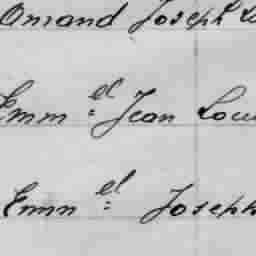 Omand Joseph
Emm:el Jean Lou
Emm:el Joseph